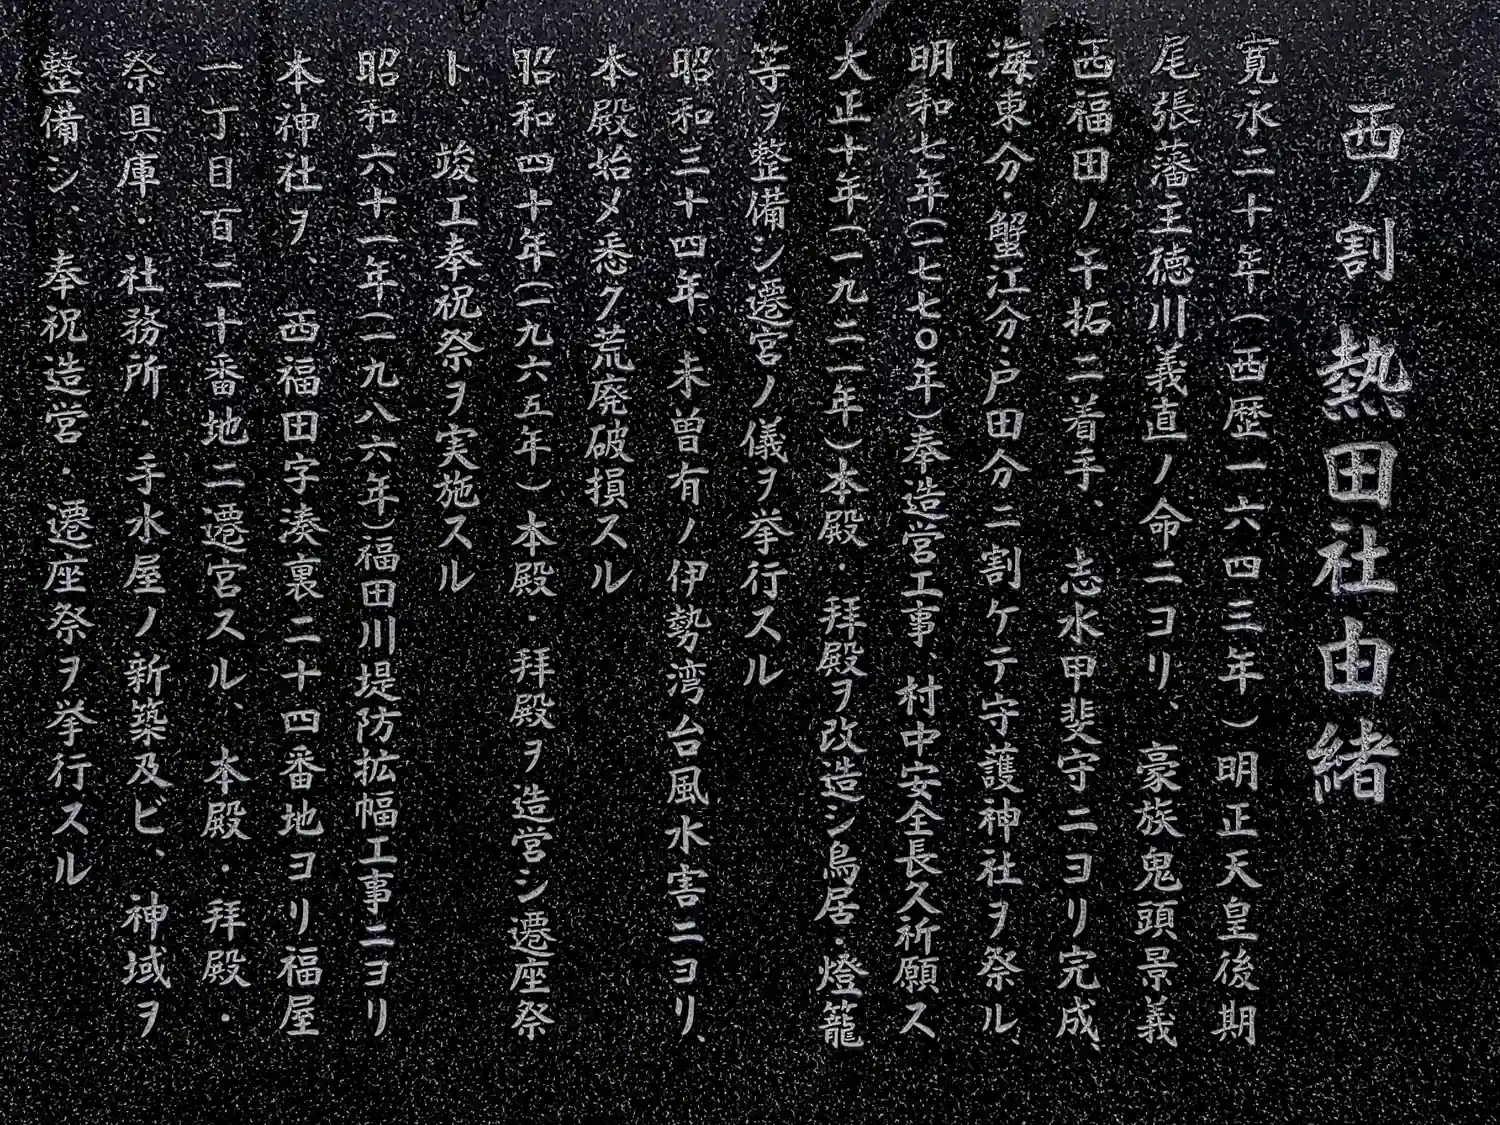 西ノ割 熱田社由緒
寛永二十年(西歴一六四三年)明正天皇後期
尾張藩主徳川義直ノ命ニヨリ、豪族鬼頭景義
西福田ノ干拓ニ着手、志水甲斐守ニヨリ完成、
海東分・蟹江分・戸田分ニ割ケテ守護神社ヲ祭ル、
明和七年(一七七〇年)奉造営工事、村中安全長久祈願ス
大正十年(一九二一年)本殿・拝殿ヲ改造シ鳥居・燈籠
等ヲ整備シ遷宮ノ儀ヲ挙行スル
昭和三十四年、未曽有ノ伊勢湾台風水害ニヨリ、
本殿始メ悉ク荒廃破損スル
昭和四十年(一九六五年)本殿・拝殿ヲ造営シ遷座祭
ト、竣工奉祝祭ヲ実施スル
昭和六十一年(一九八六年)福田川堤防拡幅工事ニヨリ
本神社ヲ、西福田字湊裏二十四番地ヨリ福屋
一丁目百二十番地ニ遷宮スル、本殿・拝殿・
祭具庫・社務所・手水屋ノ新築及ビ、神域ヲ
整備シ、奉祝造営・遷座祭ヲ挙行スル